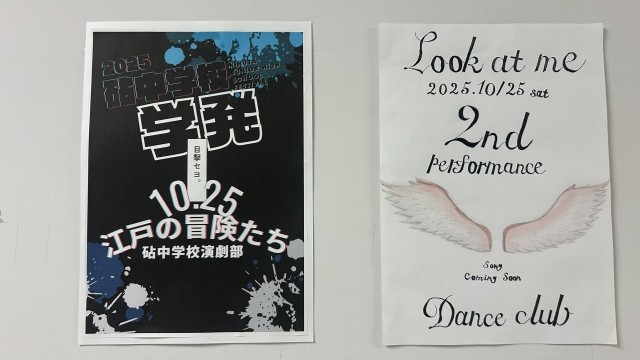 2025
砧中学校
KINUTA
JUNIOR HIGH
SCHOOL
学発
目撃セヨ。
10.25
江戸の冒険たち
砧中学校演劇部
Look at me
2025.10/25 sat
2nd
Performance
Song
Coming Soon
Dance club